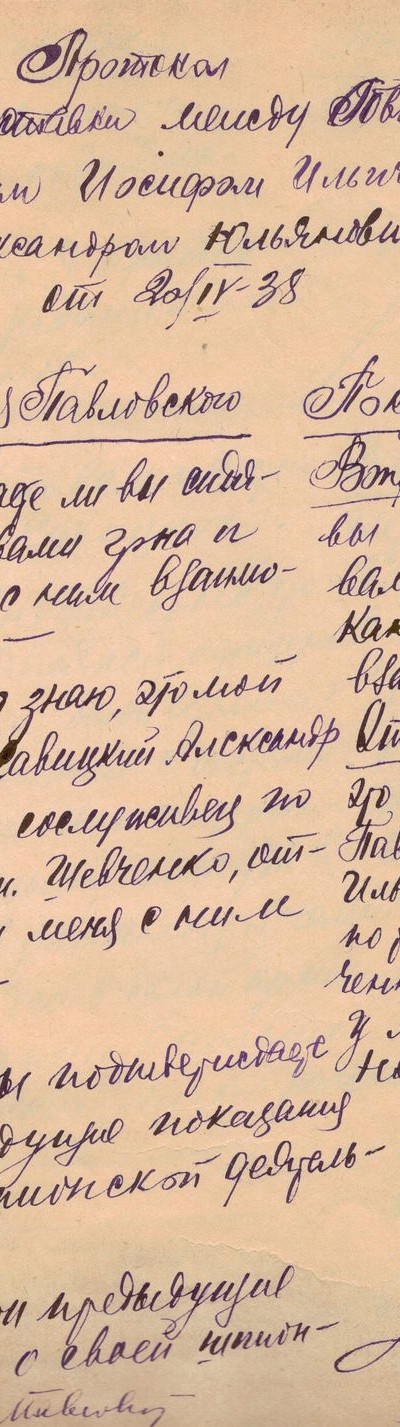 Протокол
ставки между Пав
м Иосифом Ильич
ксандром Юльянови
от 20/IV-38
Павловского
Пок
аете ли вы сидя-
вами гр-на и
с ним взаимо-
знаю, это мой
савицкий Александр
сослуживец по
м. Шевченко, от-
меня с ним
Вы
вал
Как
вза
От
это
Пав
Иль
по
чен
У
ы подтверждаете
дущие показания
пионской деятель-
ои предыдущие
о своей шпион-